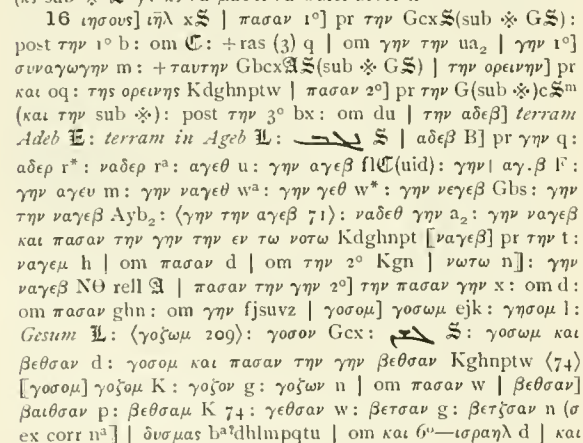 16 ιησους] ιη̅λ x𝕾 | πασαν 1º] pr την Gcx𝕾(sub ※ G𝕾):
post την 1º b: om ℭ: +ras (3) q | om γην την ua₂ | γην 1º]
συναγωγην m: +ταυτην Gbcx𝔄𝕾(sub ※ G𝕾) | την ορεινην] pr
και oq: της ορεινης Kdghnptw | πασαν 2º] pr την G(sub ※)c𝕾ᵐ
(και την sub ※): post την 3º bx: om du | την αδεβ] terram
Adeb 𝕰: terram in Ageb 𝕷: 𝕾 | αδεβ B] pr γην q:
αδερ r*: ναδερ rᵃ: αγεθ u: γην αγεβ flℭ(uid): γην| αγ.β F:
γην αγευ m: γην ναγεθ wᵃ: γην γεθ w*: γην νεγεβ Gbs: γην
την ναγεβ Ayb₂: ⟨γην την αγεβ 71⟩: ναδεθ γην a₂: γην ναγεβ
και πασαν την γην την εν τω νοτω Kdghnpt [ναγεβ] pr την t:
ναγεμ h | om πασαν d | om την 2º Kgn | νωτω n]: γην
ναγεβ NΘ rell 𝔄 | πασαν την γην 2º] την πασαν γην x: om d:
om πασαν ghn: om γην fjsuvz | γοσομ] γοσωμ ejk: γησομ l:
Gesum 𝕷: ⟨γοζωμ 209⟩: γοσον Gcx: 𝕾: γοσωμ και
βεθσαν d: γοσομ και πασαν την γην βεθσαν Kghnptw ⟨74⟩
[γοσομ] γοζομ K: γοζον g: γοζων n | om πασαν w | βεθσαν]
βαιθσαν p: βεθσαμ K 74: γεθσαν w: βετσαν g: βετζσαν n (σ
ex corr nᵃ)] | δυσμας bᵃ?dhlmpqtu | om και 6º—ισραηλ d | και